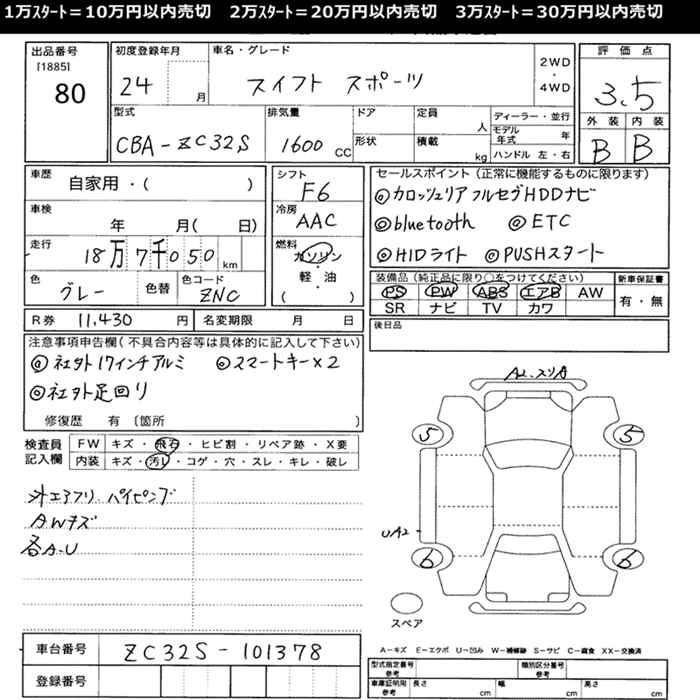 1万ｽﾀｰﾄ＝10万円以内売切　2万ｽﾀｰﾄ＝20万円以内売切　3万ｽﾀｰﾄ＝30万円以内売切
出品番号
[1885]
80
初度登録年月
24 月
車名・グレード
スイフト スポーツ
2WD
・
4WD
評価点
3.5
外装 内装
B B
型式
CBA-ZC32S
排気量
1600 CC
ドア
形状
定員 人
積載 kg
ディーラー・並行
モデル年式 年
ハンドル 左・右
車歴
自家用・( )
車検
年 月( 日)
走行
18万7千050 km
色
グレー
色替
色コード
ZNC
シフト
F6
冷房
AAC
燃料
ガソリン
軽・油
( )
セールスポイント（正常に機能するものに限ります）
◎カロッツェリアフルセグHDDナビ
◎bluetooth ◎ETC
◎HIDライト ◎PUSHスタート
装備品（純正品に限り○をつけてください）
PS PW ABS エアB AW
SR ナビ TV カワ
新車保証書
有・無
後日品
R券 11,430 円
名変期限 月 日
注意事項申告欄(不具合内容等は具体的に記入して下さい)
◎社外17インチアルミ ◎スマートキー×2
◎社外足回り
修復歴 有 〔箇所 〕
検査員
記入欄
FW キズ・飛石・ヒビ割・リペア跡・X要
内装 キズ・汚レ・コゲ・穴・スレ・キレ・破レ
外エアクリ.パイピング
AWキズ
各A・U
AL.スリA
5 5
UA2
6 6
スペア
A－キズ E－エクボ U－凹み W－補修跡 S－サビ C－腐食 XX－交換済
車台番号
ZC32S-101378
登録番号
型式指定番号 参考
類別区分番号 参考
車庫証明用 参考
長さ cm 幅 cm 高さ cm